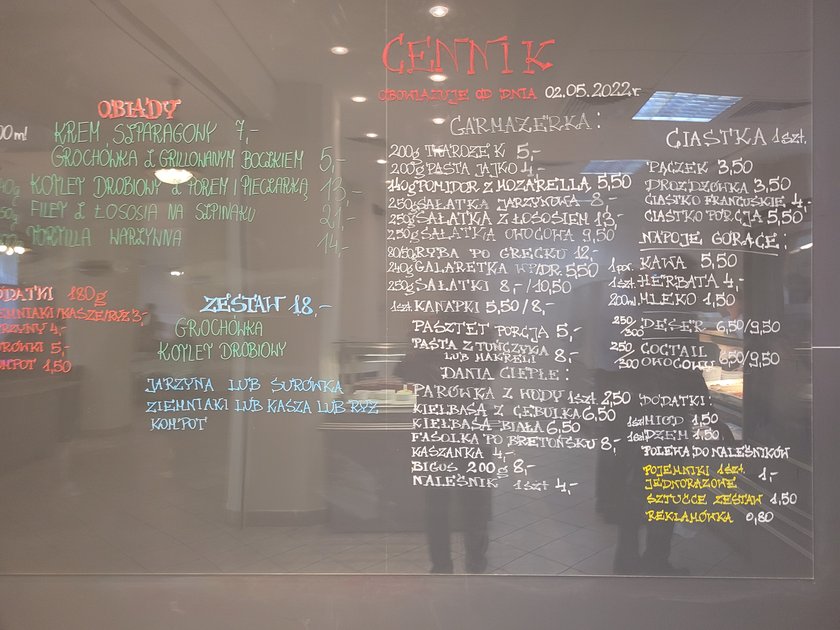 CENNIK
OBOWIĄZUJE OD DNIA 02.05.2022r.
OBIADY
00ml KREM SZPARAGOWY 7,-
GROCHÓWKA Z GRILLOWANYM BOCZKIEM 5,-
40g KOTLET DROBIOWY Z POREM I PIECZARKĄ 13,-
50g FILET Z ŁOSOSIA NA SZPINAKU 21,-
TORTILLA WARZYWNA 14,-
ODATKI 180g
EMNIAKI/KASZE/RYŻ 3-
ARZYNY 4,-
URÓWKI 5,-
OMPOT 1,50
ZESTAW 18,-
GROCHÓWKA
KOTLET DROBIOWY
JARZYNA LUB SURÓWKA
ZIEMNIAKI LUB KASZA LUB RYŻ
KOMPOT
GARMAŻERKA:
200g TWAROŻEK 5,-
200g PASTA JAJKO 4,-
POMIDOR Z MOZARELLĄ 5,50
250g SAŁATKA JARZYNOWA 8-
250g SAŁATKA Z ŁOSOSIEM 13,-
250g SAŁATKA OWOCOWA 9,50
80/50 RYBA PO GRECKU 12,-
240g GALARETKA W/DR. 5,50
250g SAŁATKI 8,-/10,50
1szt KANAPKI 5,50/8,-
PASZTET PORCJA 5,-
PASTA Z TUŃCZYKA
LUB MAKRELI 8,-
DANIA CIEPŁE:
PARÓWKA Z WODY 1szt. 2,50
KIEŁBASA Z CEBULKĄ 6,50
KIEŁBASA BIAŁA 6,50
FASOLKA PO BRETOŃSKU 8,-
KASZANKA 4,-
BIGOS 200g 8,-
NALEŚNIK 1szt 4,-
CIASTKA 1szt.
PĄCZEK 3,50
DROŻDŻÓWKA 3,50
CIASTKO FRANCUSKIE 4,-
CIASTKO PORCJA 5,50
NAPOJE GORĄCE:
1por. KAWA 5,50
1szt. HERBATA 4,-
200ml MLEKO 1,50
250/300 DESER 6,50/9,50
250/300 COCTAIL
OWOCOWY 6,50/9,50
DODATKI:
1szt MIÓD 1,50
1szt DŻEM 1,50
POLEWA DO NALEŚNIKÓW
POJEMNIKI 1szt. 1,-
JEDNORAZOWE
SZTUĆCE ZESTAW 1,50
REKLAMÓWKA 0,80